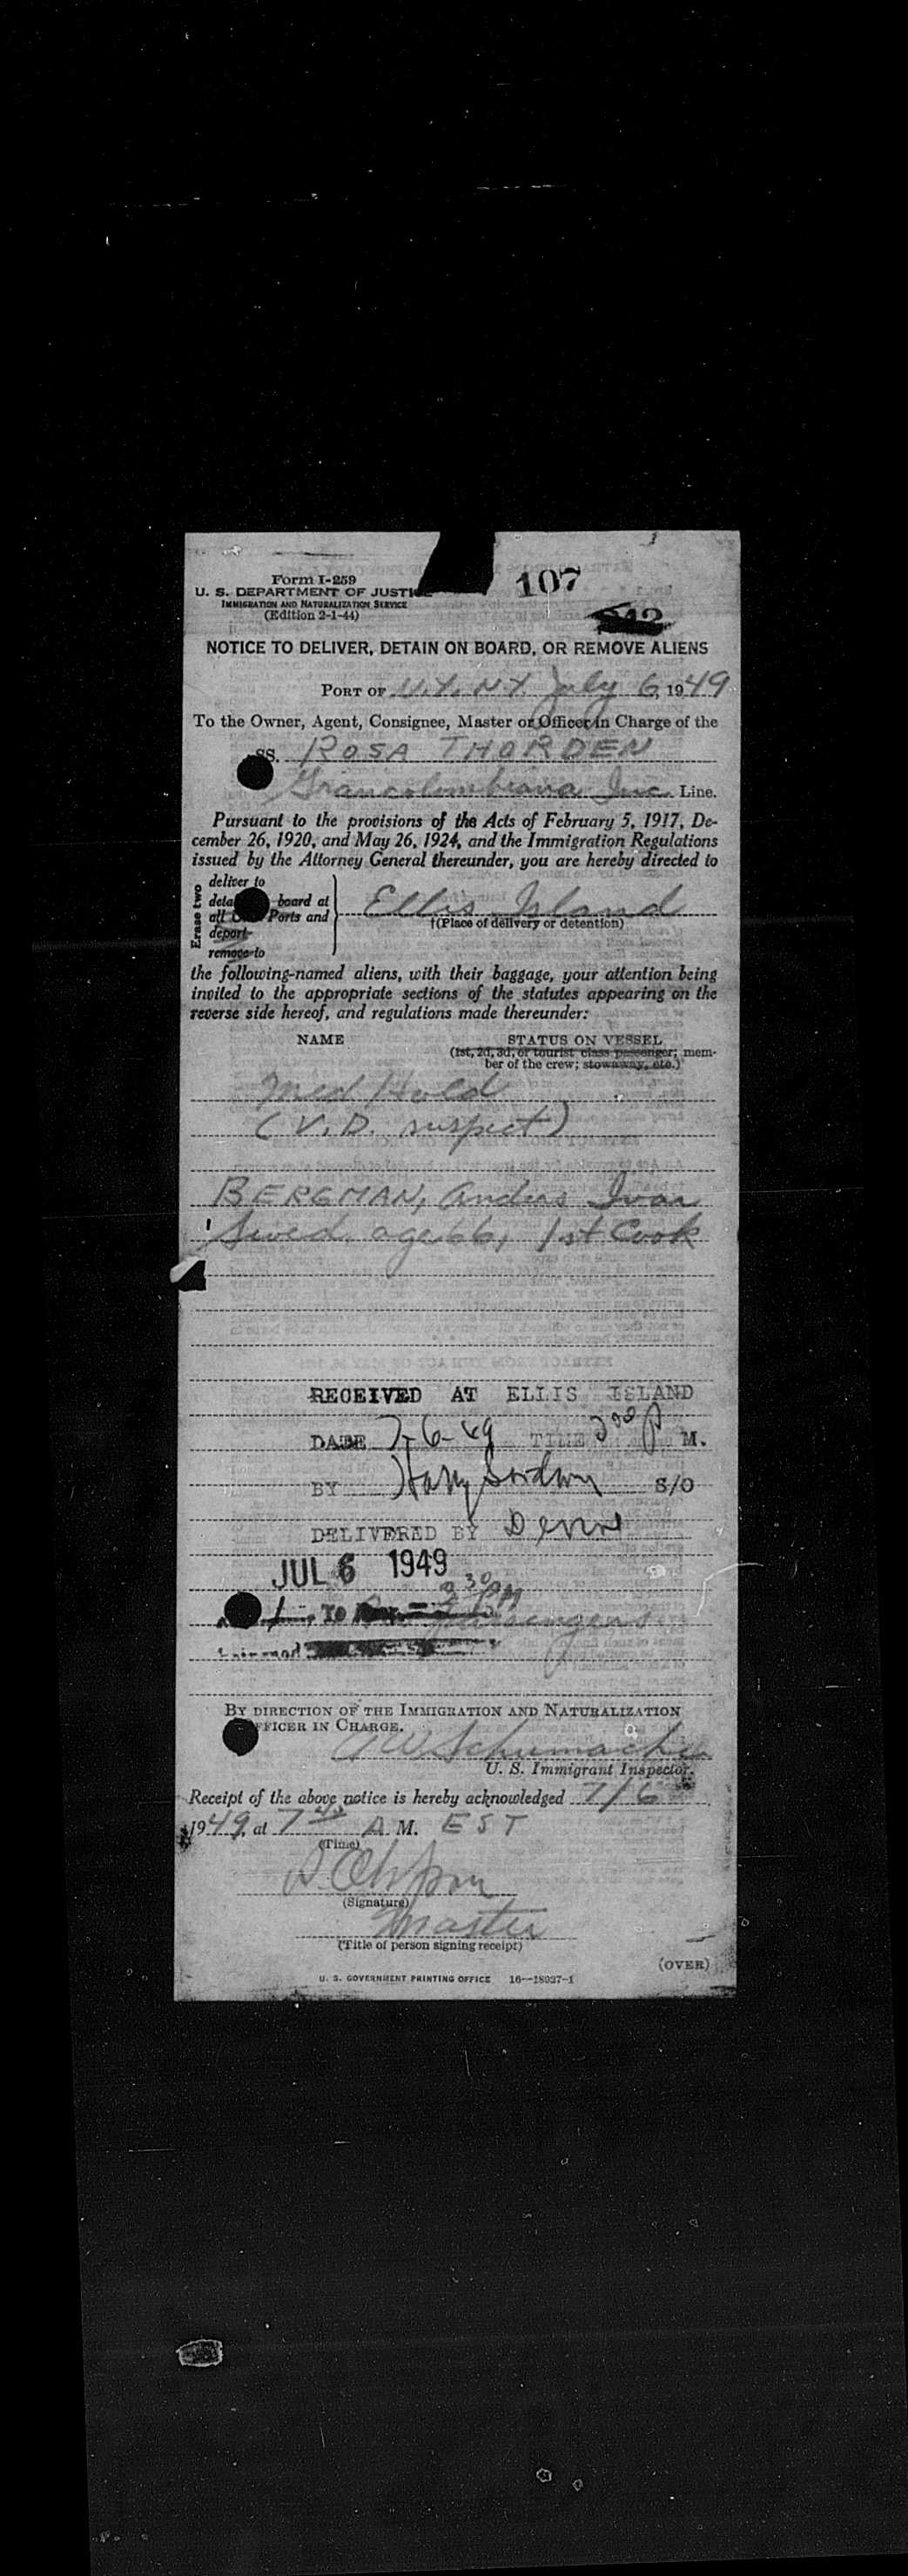 Form I-259
107
U. S. DEPARTMENT OF JUSTICE
IMMIGRATION AND NATURALIZATION SERVICE
(Edition 2-1-44)
NOTICE TO DELIVER, DETAIN ON BOARD, OR REMOVE ALIENS
PORT OF N.Y. N.Y. July 6, 1949
To the Owner, Agent, Consignee, Master or Officer in Charge of the
SS. ROSA THORDEN
Grancolombiana Inc. Line.
Pursuant to the provisions of the Acts of February 5, 1917, De-
cember 26, 1920, and May 26, 1924, and the Immigration Regulations
issued by the Attorney General thereunder, you are hereby directed to
Erase two
deliver to
board at
all Ports and
deport
remove to
Ellis Island
†(Place of delivery or detention)
the following-named aliens, with their baggage, your attention being
invited to the appropriate sections of the statutes appearing on the
reverse side hereof, and regulations made thereunder:
NAME STATUS ON VESSEL
(1st, 2d, 3d, or tourist class passenger; mem-
ber of the crew; stowaway, etc.)
Med Hold
(V.D. suspect)
BERGMAN, Anders Ivar
Swed. age 66, 1st Cook
RECEIVED AT ELLIS ISLAND
DATE 7-6-49 TIME P M.
BY Harry S/O
DELIVERED BY
JUL 6 1949
3 30 PM
TO Passengers
BY DIRECTION OF THE IMMIGRATION AND NATURALIZATION
OFFICER IN CHARGE.
Schumacher
U. S. Immigrant Inspector.
Receipt of the above notice is hereby acknowledged 7/6
1949, at 7 45 A M. EST
(Time)
(Signature)
Master
(Title of person signing receipt)
(OVER)
U. S. GOVERNMENT PRINTING OFFICE 16—18037-1